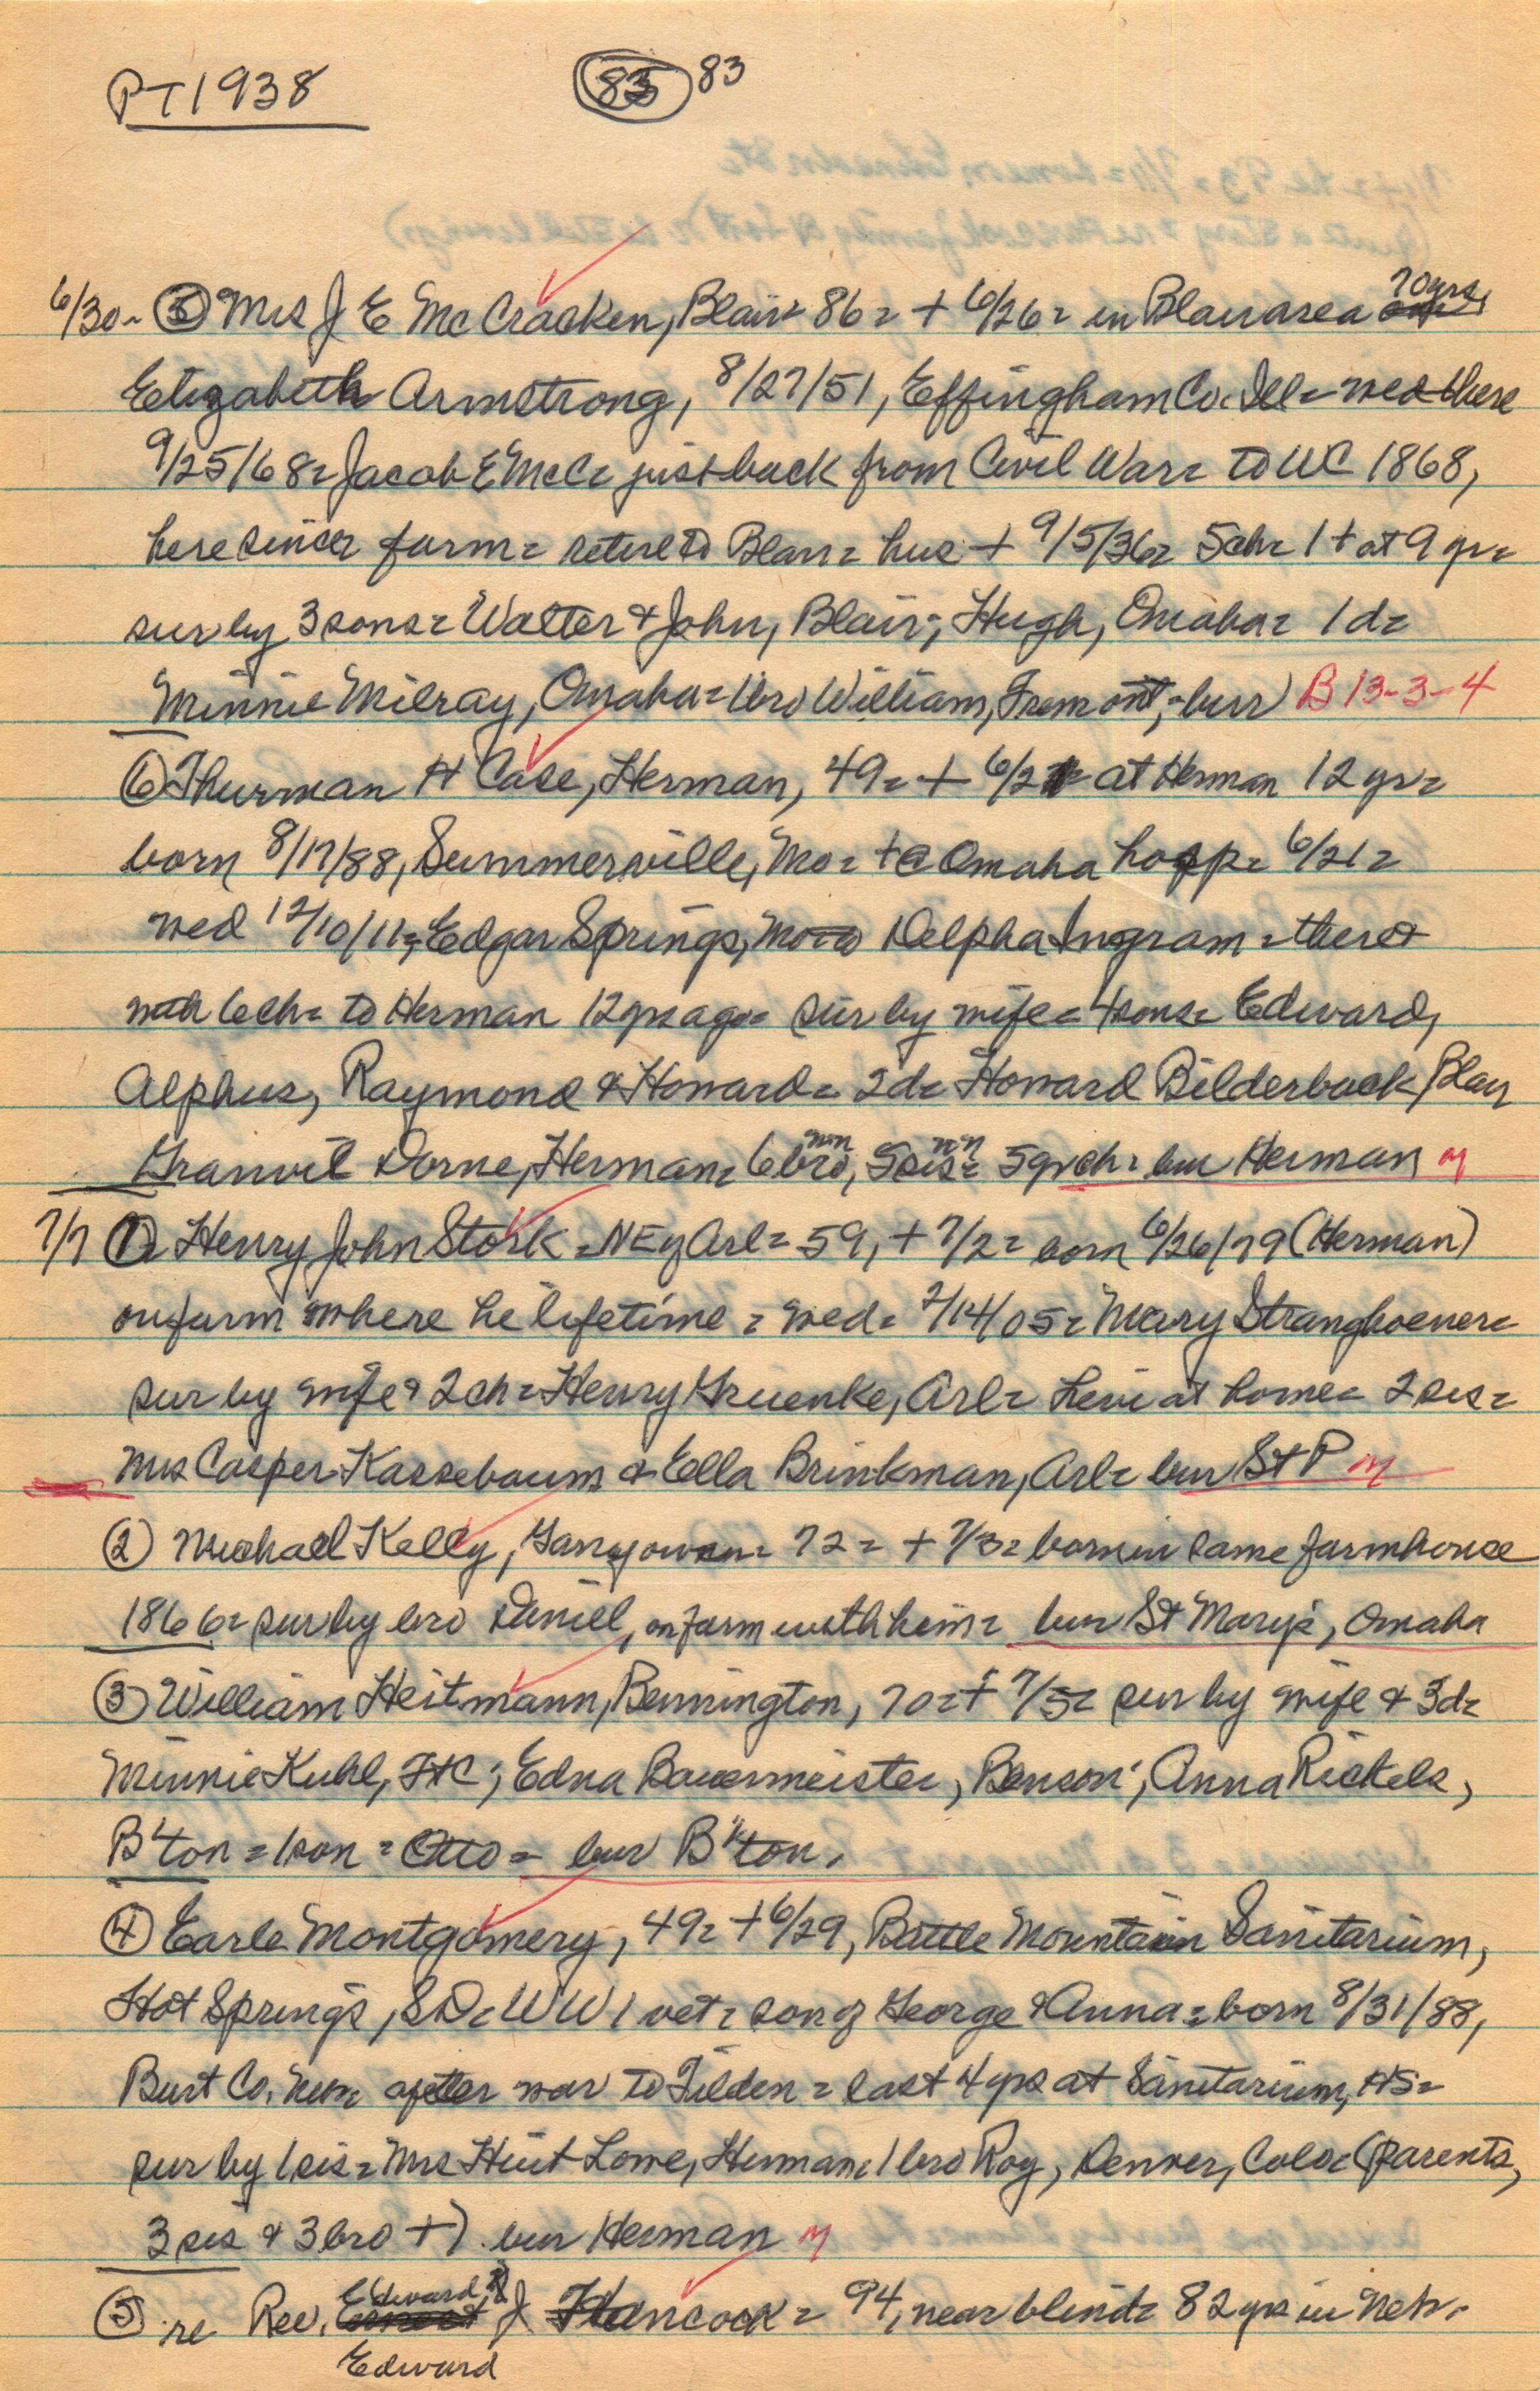 PT 1938
83 83
6/30- 5 Mrs J E McCracken, Blair= 86= + 6/26= in Blair area 70yrs,
Elizabeth Armstrong, 8/27/51, Effingham Co. Ill= wed there
9/25/68= Jacob E McC= just back from Civil War= to WC 1868,
here since= farm= retire to Blair= hus + 9/5/36= 5ch= 1+ at 9 yr=
sur by 3 sons= Walter & John, Blair; Hugh, Omaha= 1d=
Minnie Milray, Omaha= 1bro William, Fremont,= bur B 13-3-4
6 Thurman H Case, Herman, 49= + 6/21= at Herman 12 yr=
born 8/17/88, Summersville, Mo= + @ Omaha hosp= 6/21=
wed 12/10/11=, Edgar Springs, Mo= Delpha Ingram = there &
with 6ch= to Herman 12yrs ago= sur by wife= 4sons= Edward,
Alphus, Raymond & Howard= 2d= Howard Bilderback, Blair
Granvil Dorne, Herman= 6bro nn, 5sis nn= 5grch= bur Herman M
7/7 1= Henry John Stork =NE of Arl= 59, + 7/2= born 6/26/79 (Herman)
on farm where he lifetime = wed= 2/14/05= Mary Stranghoener=
sur by wife & 2ch= Henry Gruenke, Arl= Levi at home= 2 sis=
Mrs Casper Kassebaum & Ella Brinkman, Arl= bur St P M
2 Michael Kelly, Garryowen= 72= + 7/3= born in same farmhouse
1866= sur by bro Daniel, on farm with him= bur St Mary's, Omaha
3 William Heitmann, Bennington, 70= + 7/5= sur by wife & 3d=
Minnie Kuhl, FtC; Edna Bauermeister, Benson; Anna Rickels,
B'ton = 1son = Otto = bur B'ton.
4 Earle Montgomery, 49= + 6/29, Battle Mountain Sanitarium,
Hot Springs, SD= WW1 vet= son of George & Anna= born 8/31/88,
Burt Co. Neb= after war to Tilden = last 4yrs at Sanitarium, HS=
sur by 1sis= Mrs Hiut Lowe, Herman= 1 bro Roy, Denver, Colo= (parents,
3 sis & 3bro +). bur Herman M
5 re Rev. Edward J Hancock = 94, near blind= 82yrs in Neb.
Edward